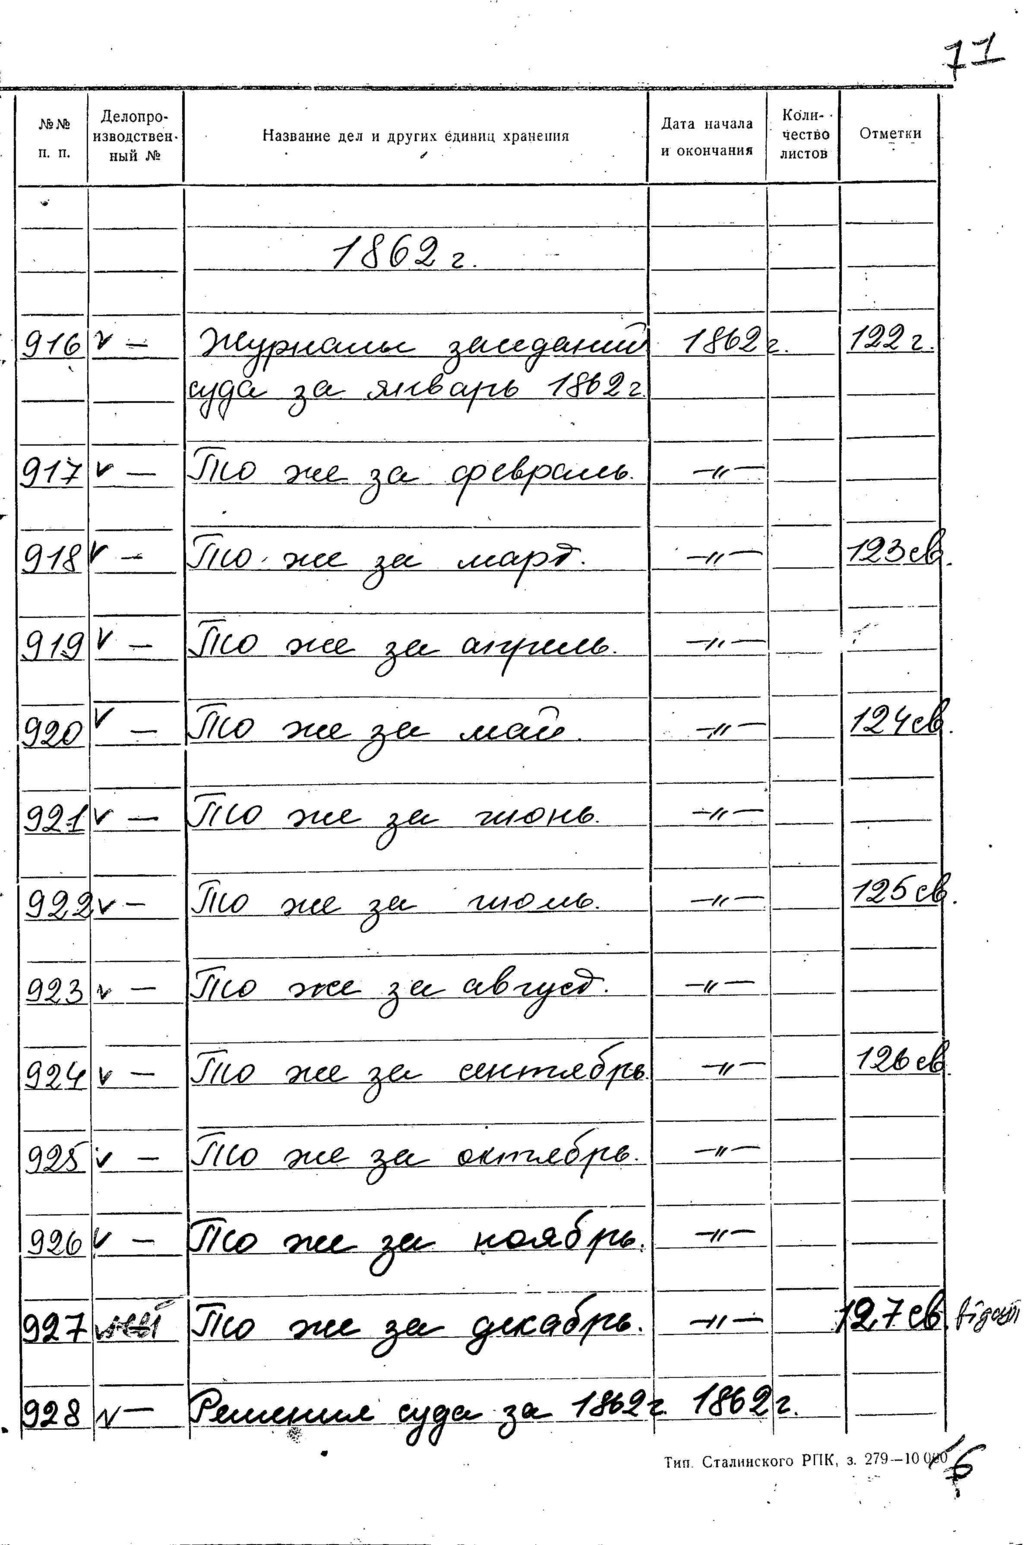 71
№№ п. п. Делопроизводственный № Название дел и других единиц хранения Дата начала и окончания Количество листов Отметки
1862 г.
916 v — Журналы заседаний 1862 г. 122 г.
суда за январь 1862 г.
917 v — То же за февраль. —〃—
918 v — То же за март. —〃— 123 св.
919 v — То же за апрель. —〃—
920 v — То же за май. —〃— 124 св.
921 v — То же за июнь. —〃—
922 v — То же за июль. —〃— 125 св.
923 v — То же за август. —〃—
924 v — То же за сентябрь. —〃— 126 св.
925 v — То же за октябрь. —〃—
926 v — То же за ноябрь. —〃—
927 v То же за декабрь. —〃— 127 св.
928 v — Решения суда за 1862 г. 1862 г.
Тип. Сталинского РПК, з. 279—10 000